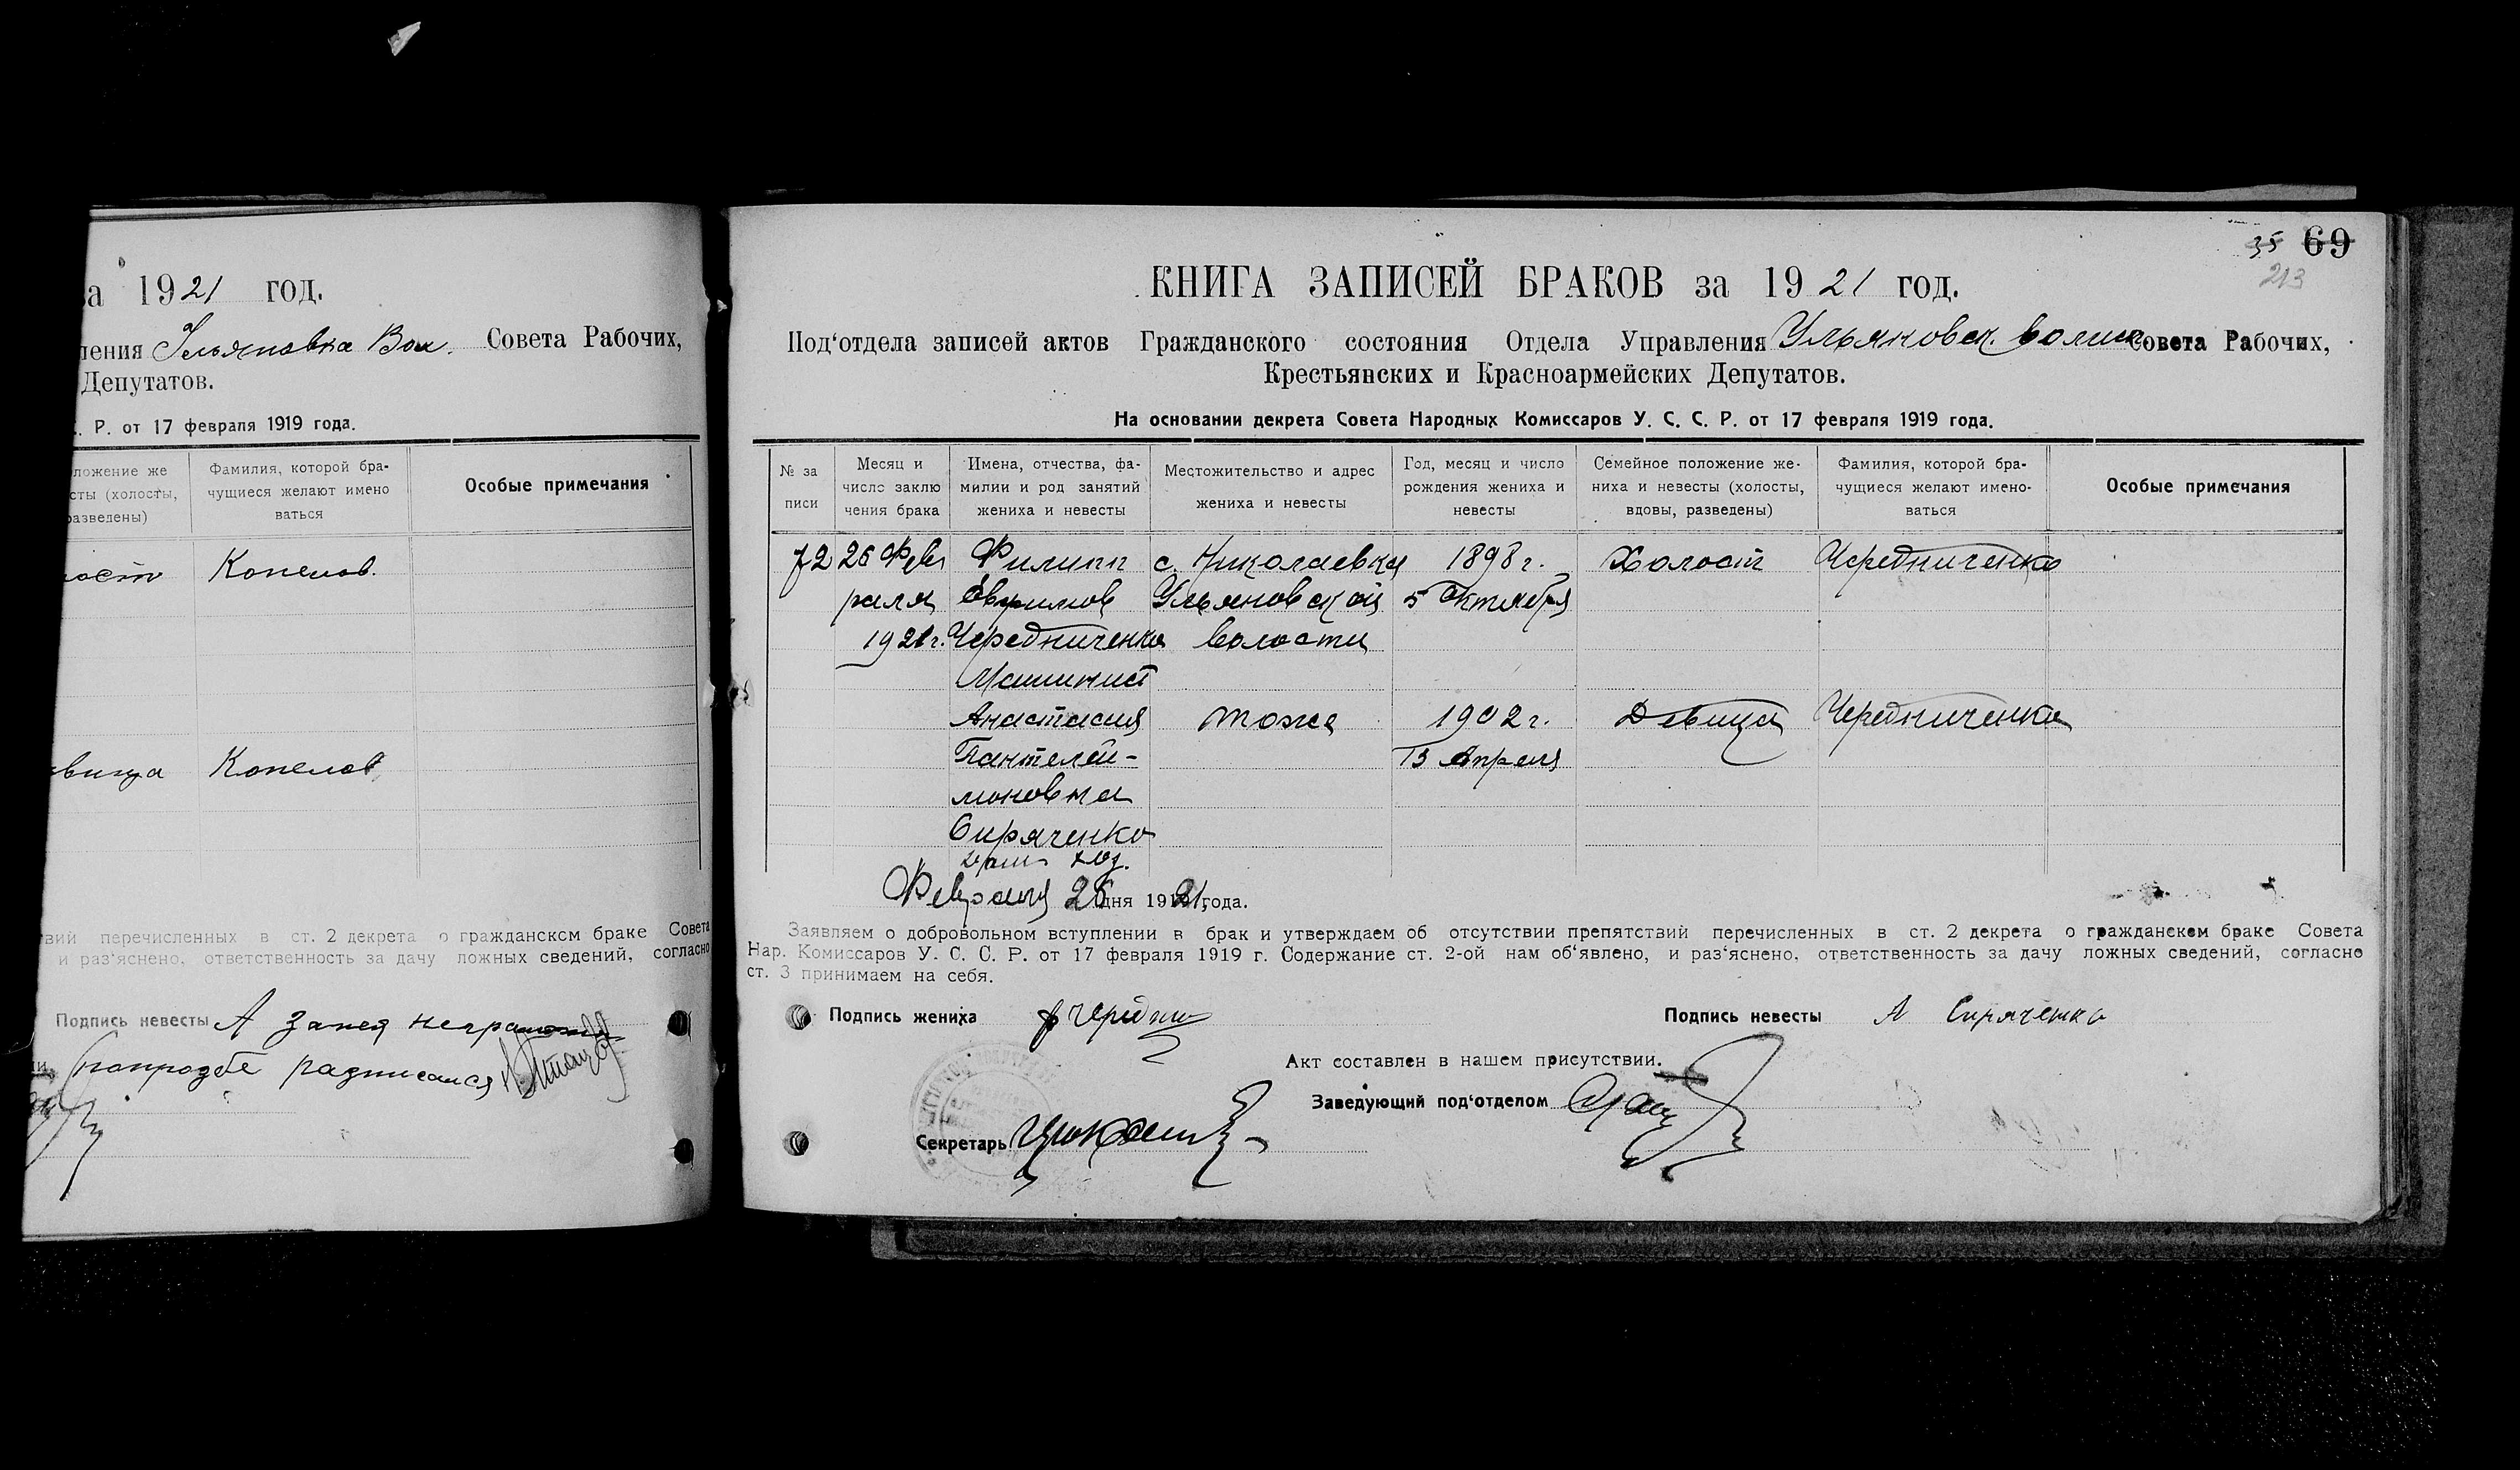 за 1921 год.
ления Ульяновка Вол. Совета Рабочих,
Депутатов.
. Р. от 17 февраля 1919 года.
ложение же
сты (холосты,
разведены)
Фамилия, которой бра-
чущиеся желают имено
ваться
Особые примечания
лост Копелов.
вица Копелов
вий перечисленных в ст. 2 декрета о гражданском браке Совета
и раз'яснено, ответственность за дачу ложных сведений, согласно
Подпись невесты А за нея
попрозбе
35 69
213
КНИГА ЗАПИСЕЙ БРАКОВ за 1921 год.
Под'отдела записей актов Гражданского состояния Отдела Управления Ульяновск. волисп. Совета Рабочих,
Крестьянских и Красноармейских Депутатов.
На основании декрета Совета Народных Комиссаров У. С. С. Р. от 17 февраля 1919 года.
№ за
писи
Месяц и
число заклю
чения брака
Имена, отчества, фа-
милии и род занятий
жениха и невесты
Местожительство и адрес
жениха и невесты
Год, месяц и число
рождения жениха и
невесты
Семейное положение же-
ниха и невесты (холосты,
вдовы, разведены)
Фамилия, которой бра-
чущиеся желают имено-
ваться
Особые примечания
72 26 Фев Филипп с. Николаевка 1898 г. Холост Чередниченко
раля Евфимов Ульяновской 5 Октября
1921 г. Чередниченко волости
Машинист
Анастасия тоже 1902 г. Девица Чередниченко
Пантелей- 13 Апреля
моновна
Сиряченко
Февраля 26 дня 1921 года.
Заявляем о добровольном вступлении в брак и утверждаем об отсутствии препятствий перечисленных в ст. 2 декрета о гражданском браке Совета
Нар. Комиссаров У. С. С. Р. от 17 февраля 1919 г. Содержание ст. 2-ой нам об'явлено, и раз'яснено, ответственность за дачу ложных сведений, согласно
ст. 3 принимаем на себя.
Подпись жениха Ф Чередни
Подпись невесты А Сиряченко
Акт составлен в нашем присутствии.
Заведующий под'отделом
Секретарь